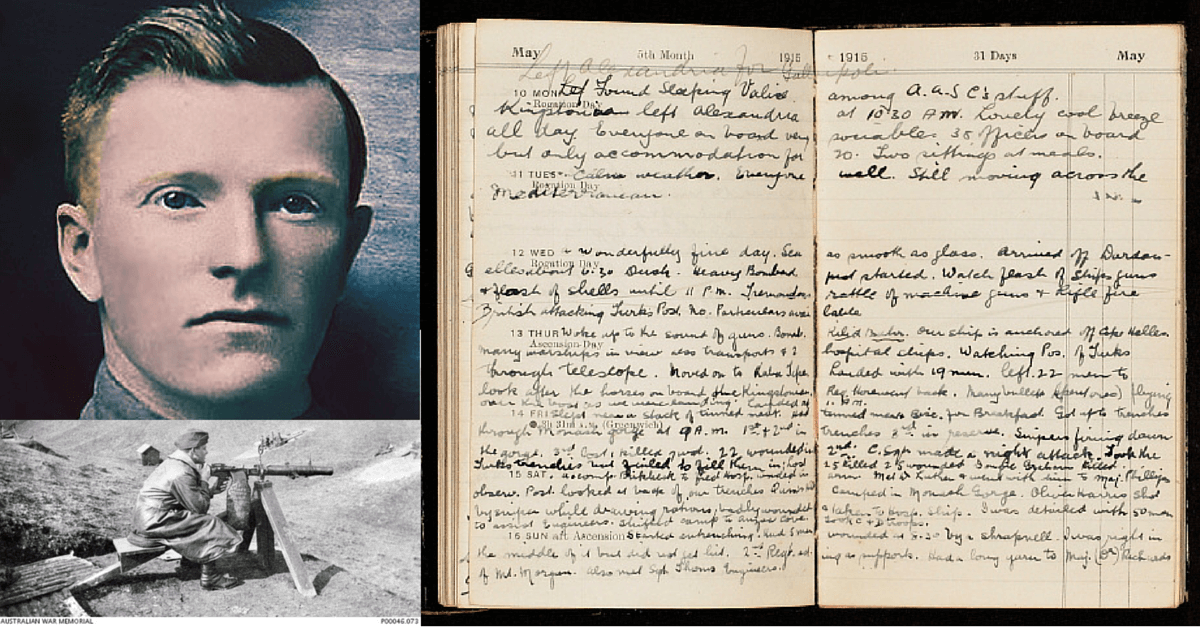 May 5th Month 1915
Left Alexandria for Gallipoli.
10 MON Found Sleeping Valise
Rogation Day
Kingstonian left Alexandria
all day. Everyone on board very
but only accommodation for
11 TUES Calm weather. Everyone
Rogation Day
Mediterranean.
12 WED a wonderfully fine day. Sea
Rogation Day
elles about 6.30 Dusk. Heavy Bombard
& flash of shells until 11 P.M. Tremendous
British attacking Turks Post. No. Particulars avai
13 THUR Woke up to the sound of guns. Bomb.
Ascension Day
many warships in view also transports & 2
through telescope. Moved on to Kaba Tepe
look after the horses on board the Kingstonian
over the boat as we were Landed at
14 FRI Slept near a stack of tinned meat. Had
3h 31m A.M. (Greenwich)
through Monash gorge at 9 A.M. 1st & 2nd in
the gorge. 3rd Cost. killed 2nd. 22 wounded in
Turks trenches but failed to fill them in,
15 SAT. Hosp. wounded in
observ. Post. looked at back of our trenches
by sniper while drawing rations, badly wounded
to assist Engineers. Shifted camp to Anzac Cove.
16 SUN aft Ascension Started entrenching. Had 5 men
the middle of it but did not get hit. 2nd Regt. ed.
of Mt. Morgan. Also met Sgt Thoms Engineers.
1915 31 Days May
among A.A.S.C's stuff.
at 10 30 A.M. Lovely cool breeze
sociable. 38 officers on board
20. Two sittings at meals.
well. Still moving across the
as smooth as glass. Arrived off Dardan-
ment started. Watch flash of ships guns
rattle of machine guns & Rifle fire
lable
Kilid Bahr. Our ship is anchored off Cape Helles.
hospital ships. Watching Pos. of Turks
Landed with 19 men. left 22 men to
back. Many bullets (spent ones) flying
P.M.
tinned meat Bisc. for Breakfast. Got up to trenches
trenches 3rd in reserve. Snipers firing down
2nd. C. Sqn made a night attack. Took the
25 killed 25 wounded Graham killed.
Met & went with him to Maj. Phillips
Camped in Monash Gorge. Oliver Harris shot
& taken to Hosp. Ship. I was detailed with 50 men
took C & D troops.
wounded at 8.30 by a shrapnell. I was right in
ing as supports. Had a long yarn to Maj. (Dr) Richards
AUSTRALIAN WAR MEMORIAL
P00046.073